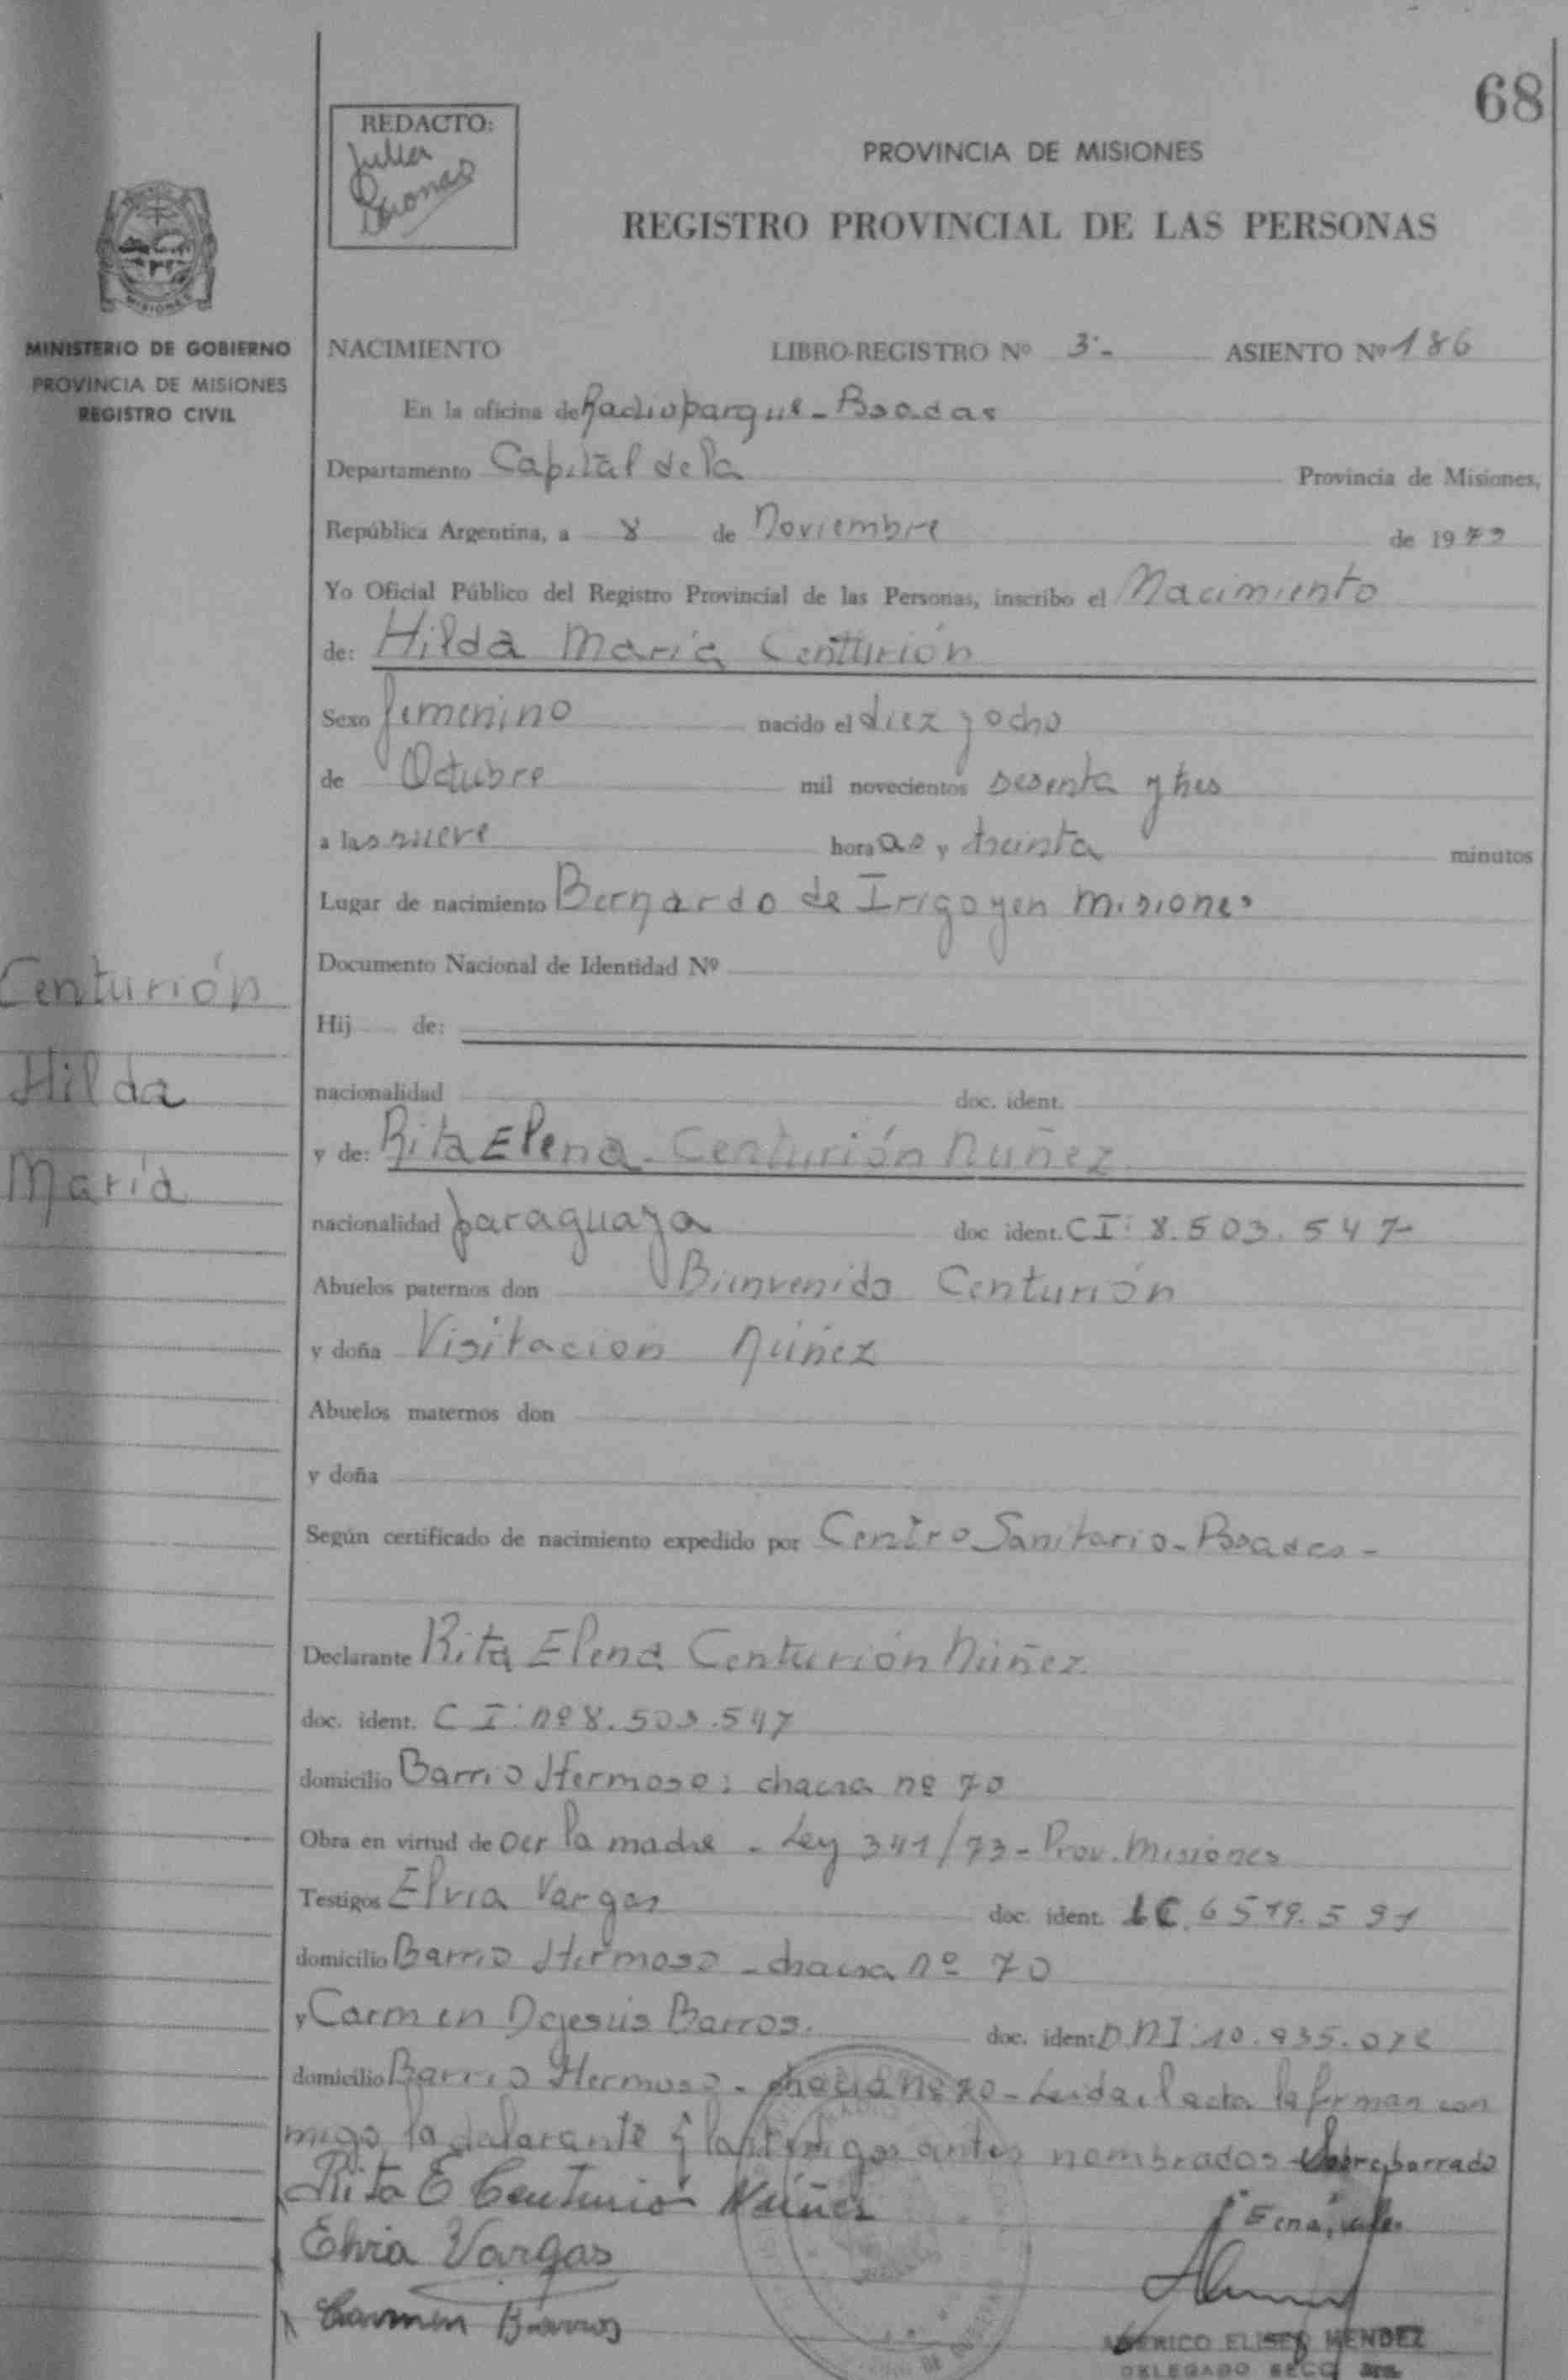 68
REDACTO:
Julia
PROVINCIA DE MISIONES
REGISTRO PROVINCIAL DE LAS PERSONAS
MISIONES
MINISTERIO DE GOBIERNO
PROVINCIA DE MISIONES
REGISTRO CIVIL
NACIMIENTO LIBRO-REGISTRO Nº 3·- ASIENTO Nº 186
En la oficina de Radioparque - Psadas
Departamento Capital de la Provincia de Misiones,
República Argentina, a 8 de Noviembre de 1979
Yo Oficial Público del Registro Provincial de las Personas, inscribo el Nacimiento
de: Hilda María Centurión
Sexo femenino nacido el diez y ocho
de Octubre mil novecientos sesenta y tres
a las nueve horaas y treinta minutos
Lugar de nacimiento Bernardo de Irigoyen Misiones
Documento Nacional de Identidad Nº
Centurión
Hij de:
Hilda
nacionalidad doc. ident.
y de: Rita Elena - Centurión Nuñez
María
nacionalidad paraguaya doc ident. CI: 8.503.547
Abuelos paternos don Bienvenido Centurión
y doña Visitación Núñez
Abuelos maternos don
y doña
Según certificado de nacimiento expedido por Centro Sanitario - Psadas -
Declarante Rita Elena Centurión Núñez
doc. ident. CI: nº 8.503.547
domicilio Barrio Hermoso: chacra nº 70
Obra en virtud de ser la madre - Ley 341/73 - Prov. Misiones
Testigos Elvia Vargas doc. ident. LC. 6579.591
domicilio Barrio Hermoso - chacra nº 70
y Carmen Dejesús Barros. doc. ident: D.N.I: 10.935.072
domicilio Barrio Hermoso - chacra nº 70 - Leida el acta la firman con
migo la declarante y los testigos antes nombrados - Sobreborrado
Rita E Centurión Núñez
"Ena", vale.
Elvia Vargas
Carmen Barros
AMERICO ELISEO MENDEZ
DELEGADO SECC